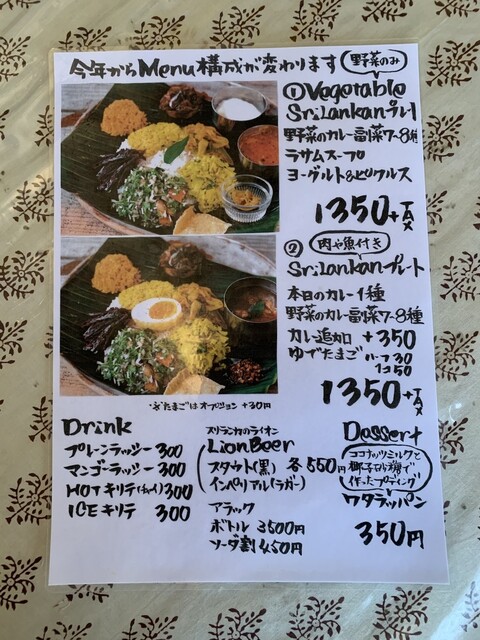 今年からMenu構成が変わります
野菜のみ
①Vegetable
SriLankanプレート
野菜のカレー副菜7~8種
ラサムスープ
ヨーグルト&ピクルス
1350+TAX
② 肉や魚付き
SriLankanプレート
本日のカレー1種
野菜のカレー副菜7~8種
カレー追加 +350
ゆでたまご
ハーフ30
1コ50
1350+TAX
ゆでたまごはオプション +30円
Drink
プレーンラッシー 300
マンゴーラッシー 300
HOTキリテ 300
ICEキリテ 300
スリランカのライオン
LionBeer
スタウト(黒) 各550円
インペリアル(ラガー)
アラック
ボトル 3500円
ソーダ割 450円
Dessert
ココナッツミルクと
椰子砂糖で
作ったプディング
ワタラッパン
350円